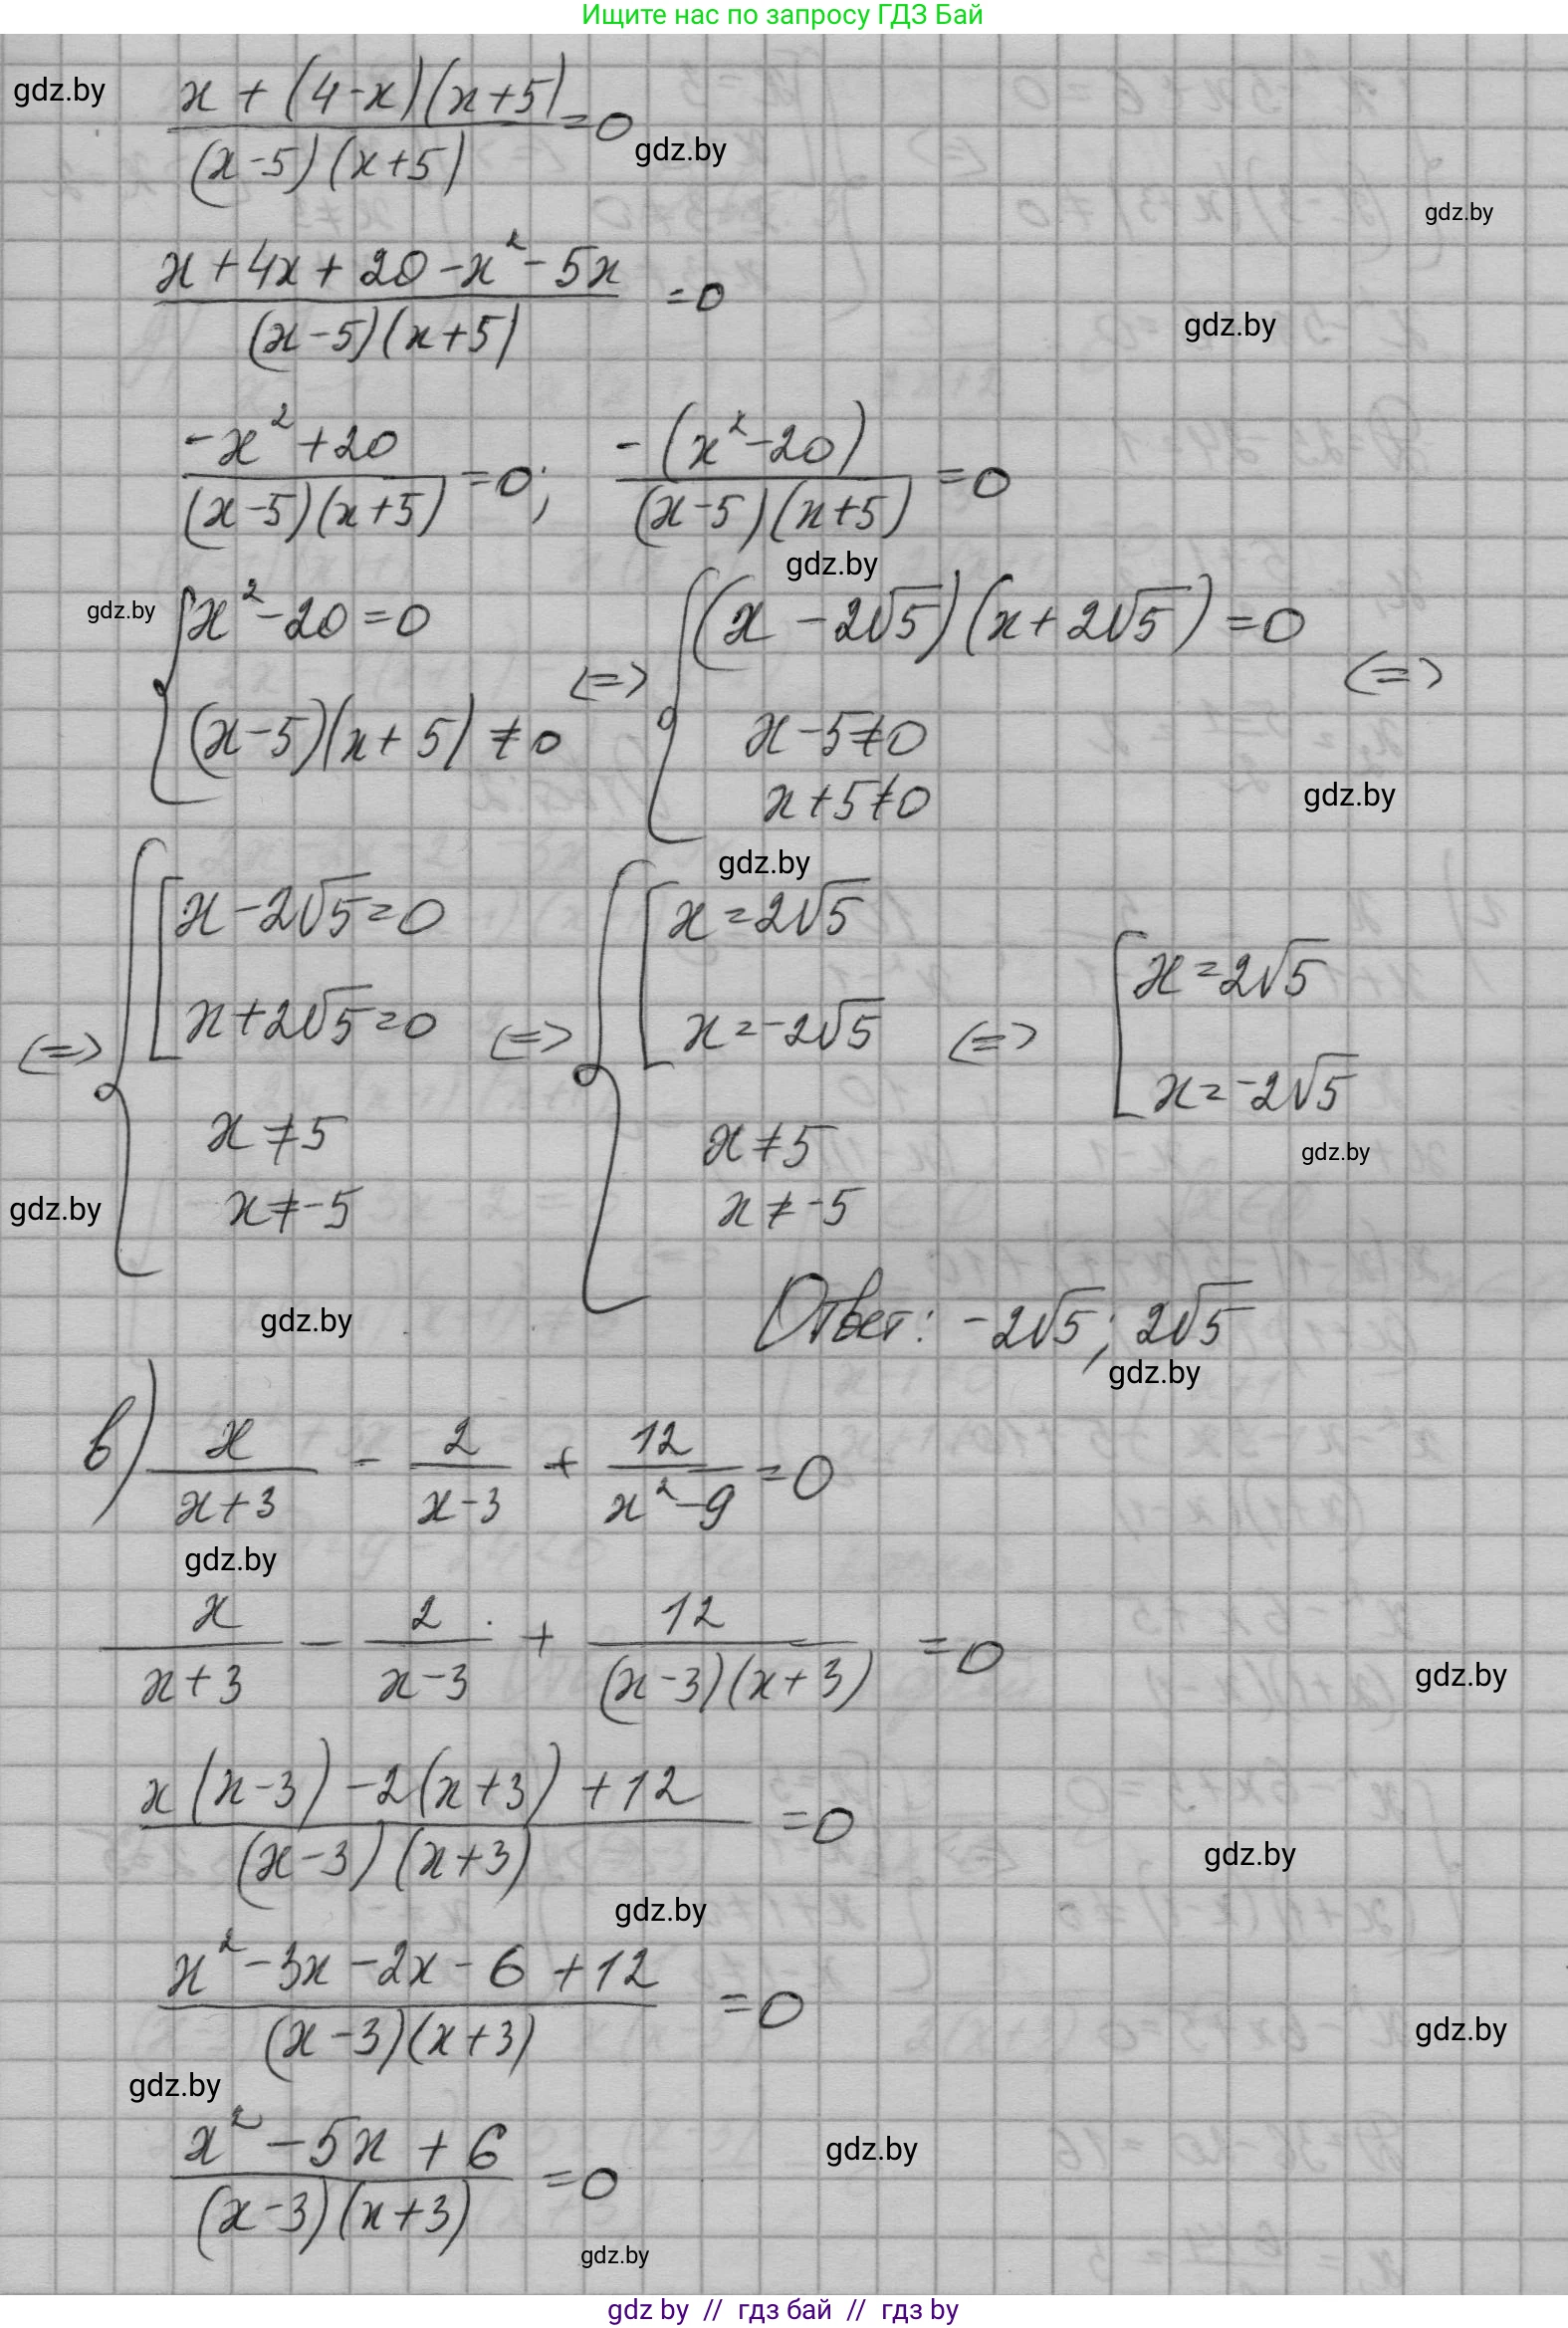 Ищите нас по запросу ГДЗ Бай
gdz.by
(x + (4-x)(x+5))/((x-5)(x+5)) =0
gdz.by
gdz.by
(x+4x+20-x²-5x)/((x-5)(x+5)) =0
gdz.by
(-x²+20)/((x-5)(x+5)) =0; (-(x²-20))/((x-5)(x+5)) =0
gdz.by
gdz.by
{ x²-20=0
(x-5)(x+5)≠0
<=>
{ (x-2√5)(x+2√5)=0
x-5≠0
x+5≠0
<=>
gdz.by
gdz.by
<=> { [ x-2√5=0
x+2√5=0
x≠5
x≠-5
<=> { [ x=2√5
x=-2√5
x≠5
x≠-5
<=> [ x=2√5
x=-2√5
gdz.by
gdz.by
gdz.by
Ответ: -2√5; 2√5
gdz.by
в) x/(x+3) - 2/(x-3) + 12/(x²-9) =0
gdz.by
x/(x+3) - 2/(x-3) + 12/((x-3)(x+3)) =0
gdz.by
(x(x-3)-2(x+3)+12)/((x-3)(x+3)) =0
gdz.by
gdz.by
(x²-3x-2x-6+12)/((x-3)(x+3)) =0
gdz.by
gdz.by
(x²-5x+6)/((x-3)(x+3)) =0
gdz.by
gdz.by
gdz by // гдз бай // гдз by